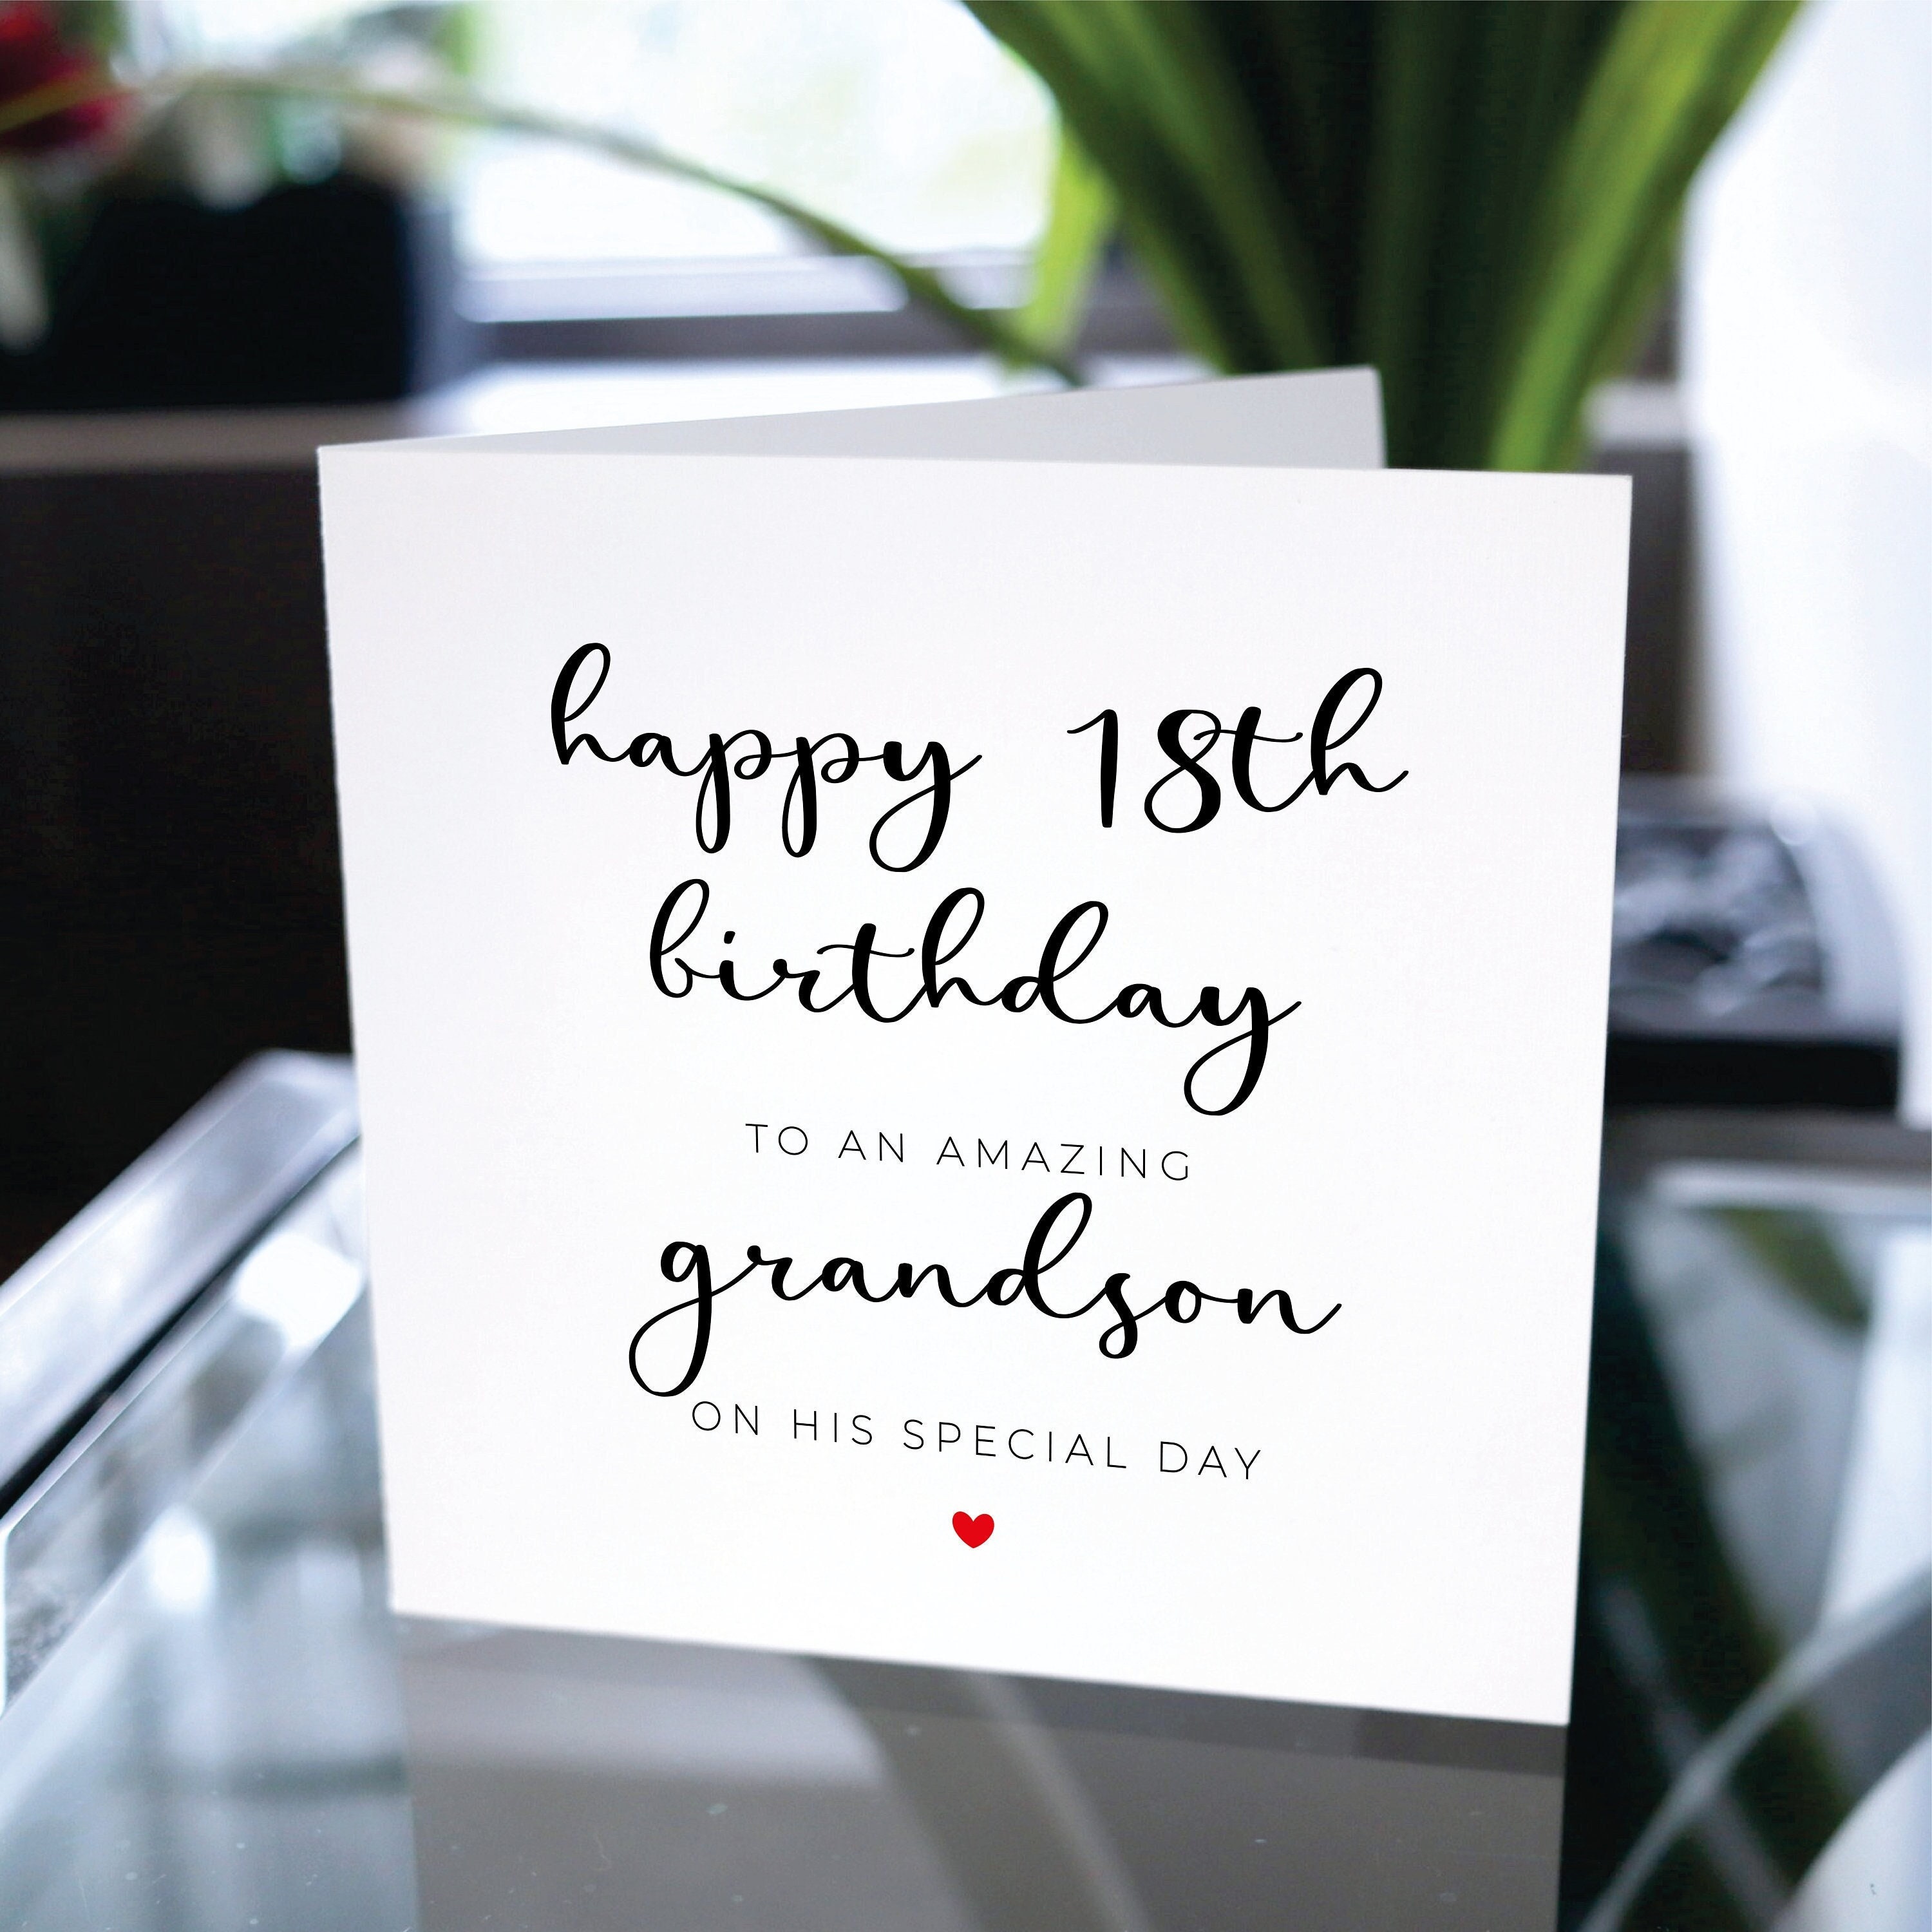 happy 18th
birthday
TO AN AMAZING
grandson
ON HIS SPECIAL DAY